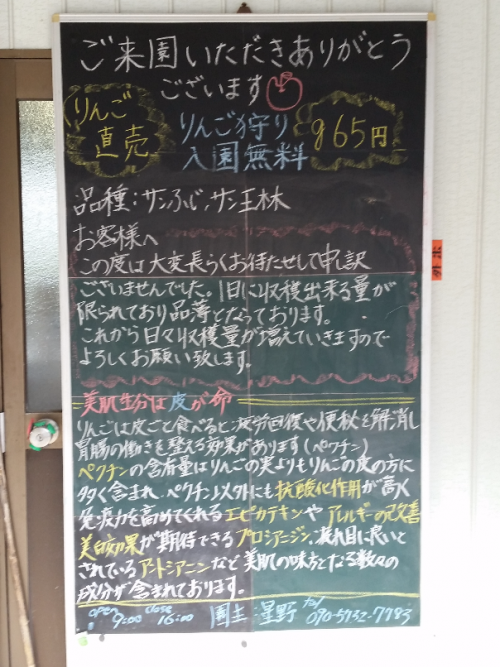 ご来園いただきありがとう
ございます
りんご
直売
りんご狩り
入園無料
g65円
品種:サンふじ、サン王林
お客様へ
この度は大変長らくお待たせして申訳
ございませんでした。1日に収穫出来る量が
限られており品薄となっております。
これから日々収穫量が増えていきますので
よろしくお願い致します。
美肌生分は皮が命
りんごは皮ごと食べると、疲労回復や便秘を解消し
胃腸の働きを整える効果があります(ペクチン)
ペクチンの含有量はりんごの実よりもりんごの皮の方に
多く含まれ、ペクチン以外にも抗酸化作用が高く
免疫力を高めてくれるエピカテキンやアレルギーの改善
美白効果が期待できるプロシアニジン、疲れ目に良いと
されているアントシアニンなど美肌の味方となる数々の
成分が含まれております。
open 9:00 close 16:00 園主 星野 tel 090-5732-7783